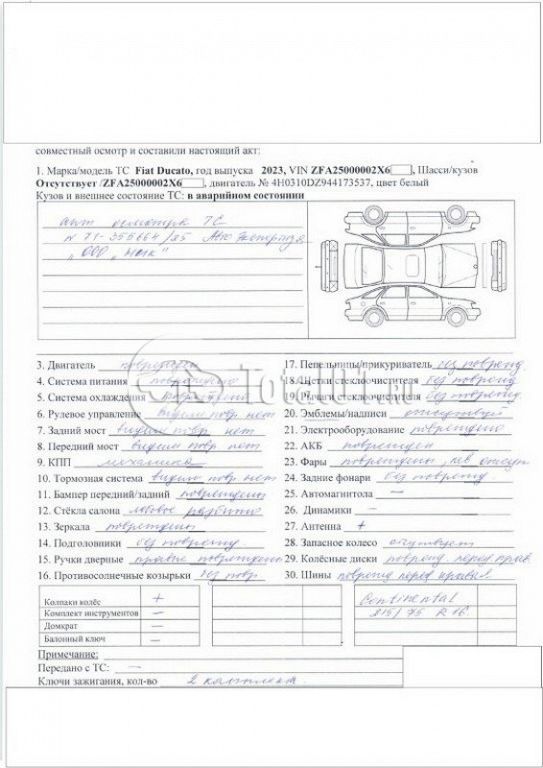 совместный осмотр и составили настоящий акт:
1. Марка/модель ТС Fiat Ducato, год выпуска 2023, VIN ZFA25000002X6 , Шасси/кузов
Отсутствует /ZFA25000002X6 , двигатель № 4H0310DZ944173537, цвет белый
Кузов и внешнее состояние ТС: в аварийном состоянии
акт осмотра ТС
№ 71-355664/25
"ООО "
TotalUt.ru
3. Двигатель повреждён
4. Система питания повреждено
5. Система охлаждения повреждено
6. Рулевое управление видим повр нет
7. Задний мост видим повр. нет
8. Передний мост видим повр нет
9. КПП механика
10. Тормозная система видим повр. нет
11. Бампер передний/задний повреждены
12. Стёкла салона лобовое разбито
13. Зеркала повреждены
14. Подголовники без поврежд
15. Ручки дверные правые повреждены
16. Противосолнечные козырьки без повр
17. Пепельницы/прикуриватель без поврежд
18. Щетки стеклоочистителя без поврежд
19. Рычаги стеклоочистителя без поврежд
20. Эмблемы/надписи отсутствуют
21. Электрооборудование повреждено
22. АКБ поврежден
23. Фары повреждены, лев отсут
24. Задние фонари без поврежд.
25. Автомагнитола —
26. Динамики —
27. Антенна +
28. Запасное колесо отсутствует
29. Колёсные диски поврежд перед прав
30. Шины поврежд перед правая
Колпаки колёс +
Комплект инструментов —
Домкрат —
Балонный ключ —
Continental
215/75 R 16
Примечание:
Передано с ТС: —
Ключи зажигания, кол-во 2 комплект